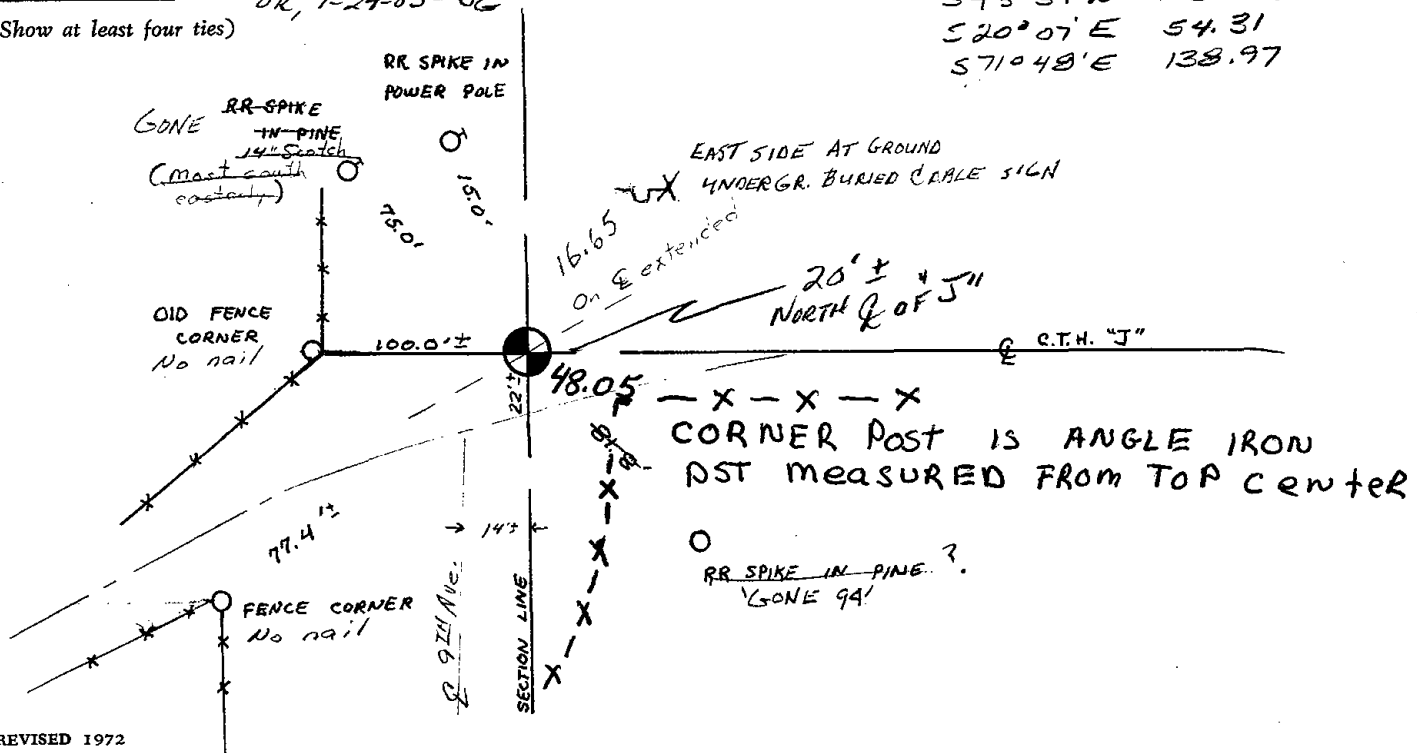 (Show at least four ties)
S20°07'E 54.31
S71°48'E 138.97
RR SPIKE IN
POWER POLE
GONE RR SPIKE
IN PINE
14" Scotch
(most south
easterly)
75.0'
15.0'
EAST SIDE AT GROUND
UNDERGR. BURIED CABLE SIGN
16.65
On ℄ extended
20' ±
NORTH ℄ OF "J"
OLD FENCE
CORNER
No nail
100.0'±
℄ C.T.H. "J"
22'±
48.05
CORNER Post IS ANGLE IRON
DST MEASURED FROM TOP CENTER
77.4'±
14'±
RR SPIKE IN PINE ?.
'GONE 94'
FENCE CORNER
No nail
℄ 9TH AVE.
SECTION LINE
REVISED 1972